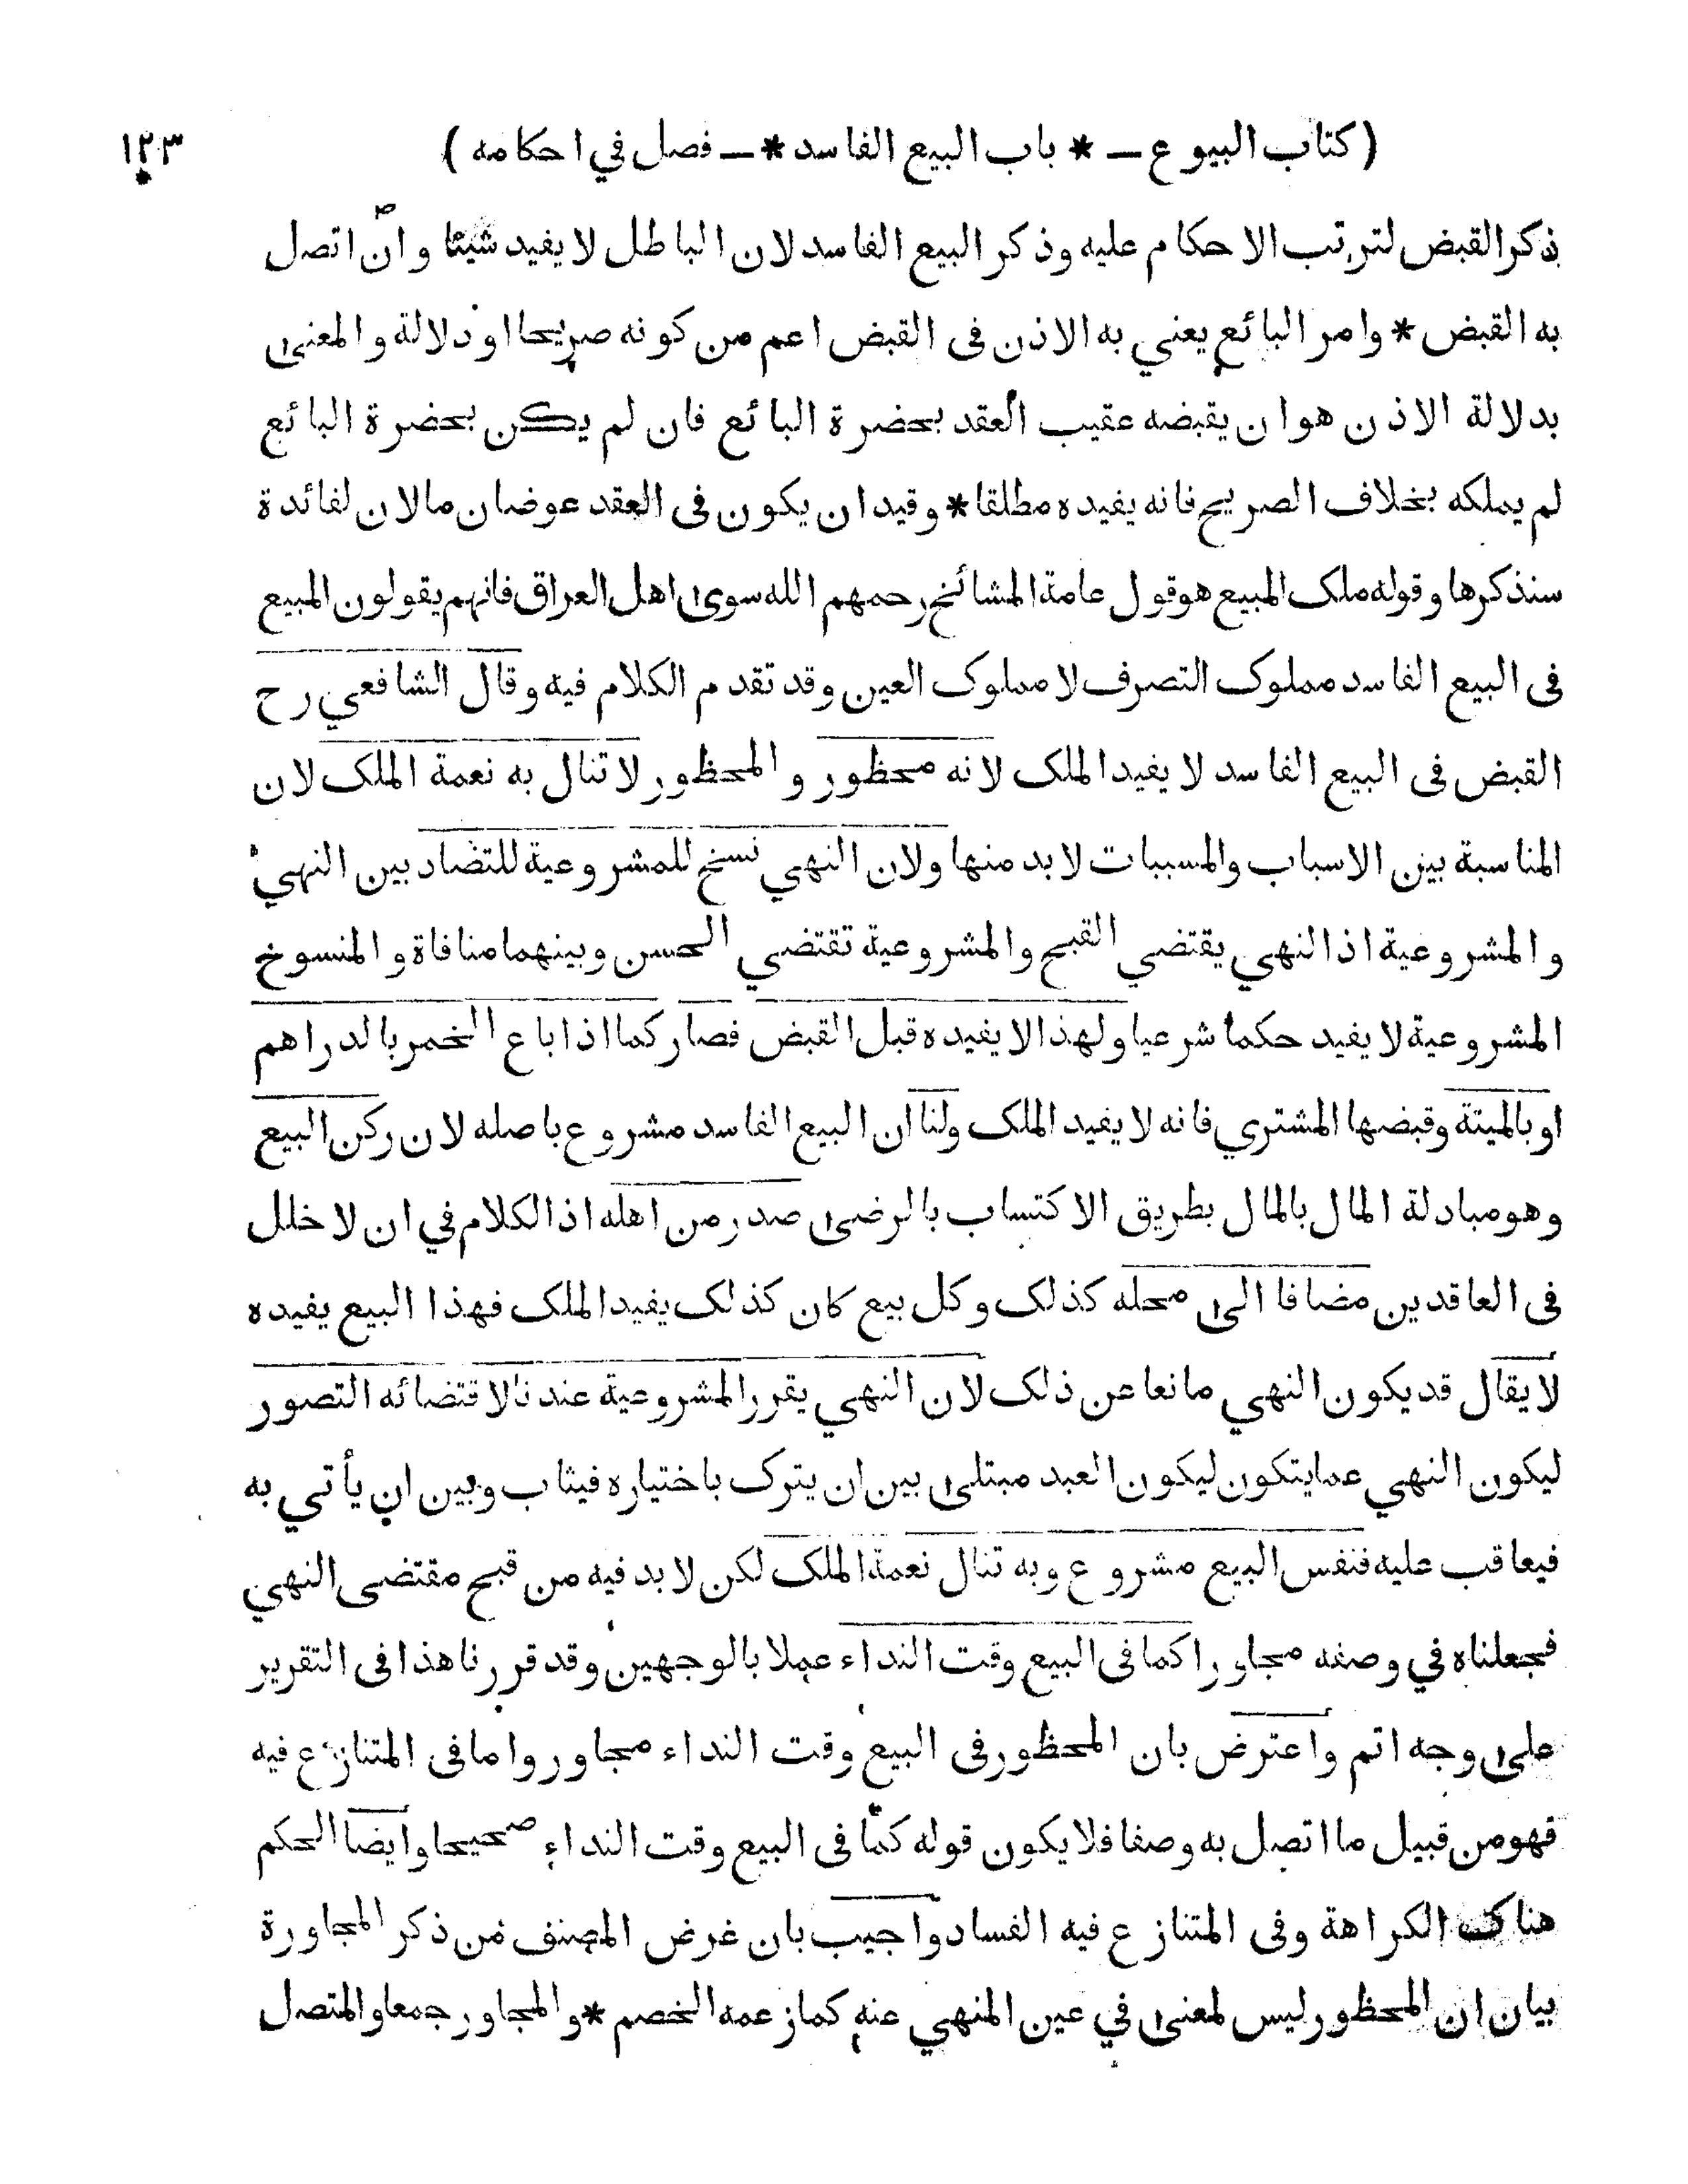 (كتاب البيوع ــ * باب البيع الفاسد * ــ فصل في احكامه) ١٢٣
ذكر القبض لترتب الاحكام عليه وذكر البيع الفاسد لان الباطل لا يفيد شيئا وان اتصل
به القبض * وامر البائع يعني به الاذن فى القبض اعم من كونه صريحا او دلالة والمعنى
بدلالة الاذن هو ان يقبضه عقيب العقد بحضرة البائع فان لم يكن بحضرة البائع
لم يملكه بخلاف الصريح فانه يفيده مطلقا * وقيد ان يكون فى العقد عوضان مالان لفائدة
سنذكرها وقوله ملك المبيع هو قول عامة المشائخ رحمهم الله سوى اهل العراق فانهم يقولون المبيع
فى البيع الفاسد مملوك التصرف لا مملوك العين وقد تقدم الكلام فيه وقال الشافعي رح
القبض فى البيع الفاسد لا يفيد الملك لانه محظور والمحظور لا تنال به نعمة الملك لان
المناسبة بين الاسباب والمسببات لا بد منها ولان النهي نسخ للمشروعية للتضاد بين النهي
والمشروعية اذ النهي يقتضي القبح والمشروعية تقتضي الحسن وبينهما منافاة والمنسوخ
المشروعية لا يفيد حكما شرعيا ولهذا لا يفيده قبل القبض فصار كما اذا باع الخمر بالدراهم
او بالميتة وقبضها المشتري فانه لا يفيد الملك ولنا ان البيع الفاسد مشروع باصله لان ركن البيع
وهو مبادلة المال بالمال بطريق الاكتساب بالرضى صدر من اهله اذ الكلام في ان لا خلل
فى العاقدين مضافا الى محله كذلك وكل بيع كان كذلك يفيد الملك فهذا البيع يفيده
لا يقال قد يكون النهي مانعا عن ذلك لان النهي يقرر المشروعية عندنا لاقتضائه التصور
ليكون النهي عما يتكون ليكون العبد مبتلى بين ان يترك باختياره فيثاب وبين ان يأتي به
فيعاقب عليه فنفس البيع مشروع وبه تنال نعمة الملك لكن لا بد فيه من قبح مقتضى النهي
فجعلناه في وصفه مجاورا كما فى البيع وقت النداء عملا بالوجهين وقد قررنا هذا فى التقرير
على وجه اتم واعترض بان المحظور فى البيع وقت النداء مجاور واما فى المتنازع فيه
فهو من قبيل ما اتصل به وصفا فلا يكون قوله كما فى البيع وقت النداء صحيحا وايضا الحكم
هناك الكراهة وفى المتنازع فيه الفساد واجيب بان غرض المصنف من ذكر المجاورة
بيان ان المحظور ليس لمعنى في عين المنهي عنه كما زعمه الخصم * والمجاور جمعا والمتصل